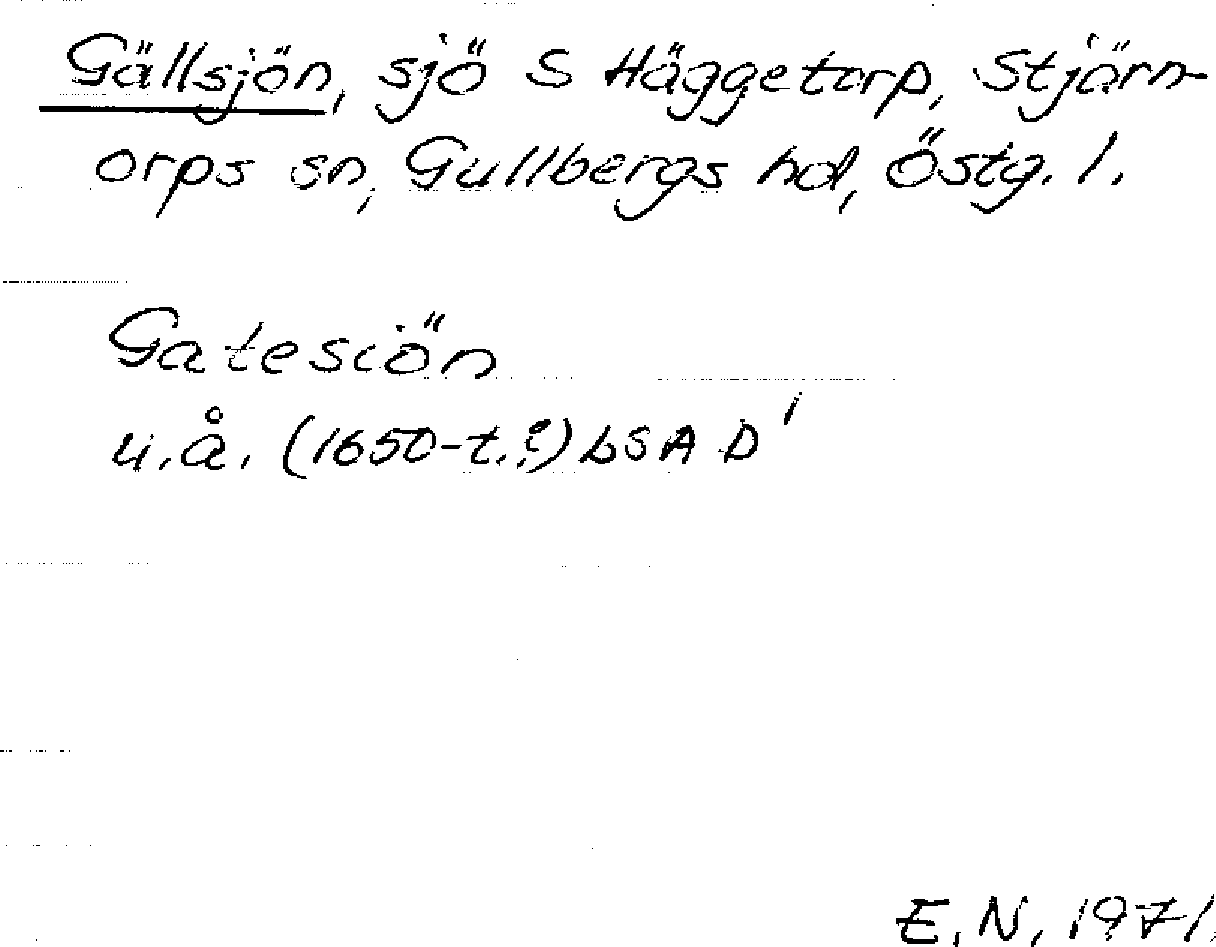 Gällsjön, sjö S Häggetorp, Stjärn-
orps sn, Gullbergs hd, Östg. l.
Gatesiön
u.å. (1650-t.?) LSA D'
E.N. 1971.